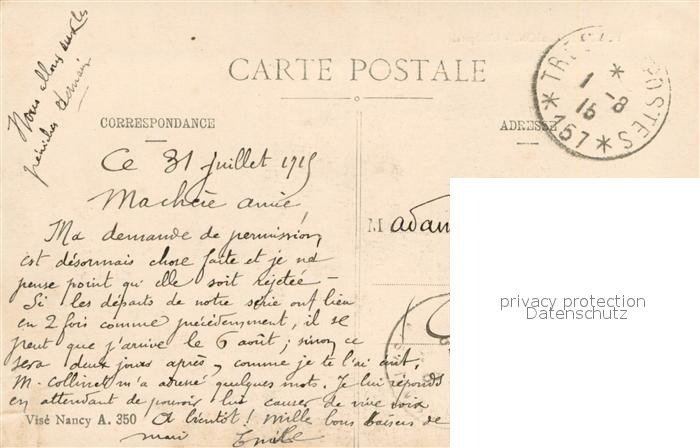 Nous allons sur les
péniches demain
CARTE POSTALE
CORRESPONDANCE
ADRESSE
* TRÉS POSTES *
1 -8
15
* 157 *
Ce 31 Juillet 1915
Ma chère amie
Madam
Ma demande de permission,
est désormais chose faite et je ne
pense point qu'elle soit rejetée –
Si les départs de notre série ont lieu
en 2 fois comme précédemment, il se
peut que j'arrive le 6 août ; sinon ce
sera deux jours après, comme je te l'ai écrit.
M. Collinet m'a adressé quelques mots. Je lui réponds
en attendant de pouvoir lui causer de vive voix
Visé Nancy A. 350 A bientôt ! Mille bons baisers de
mari Emile
privacy protection
Datenschutz